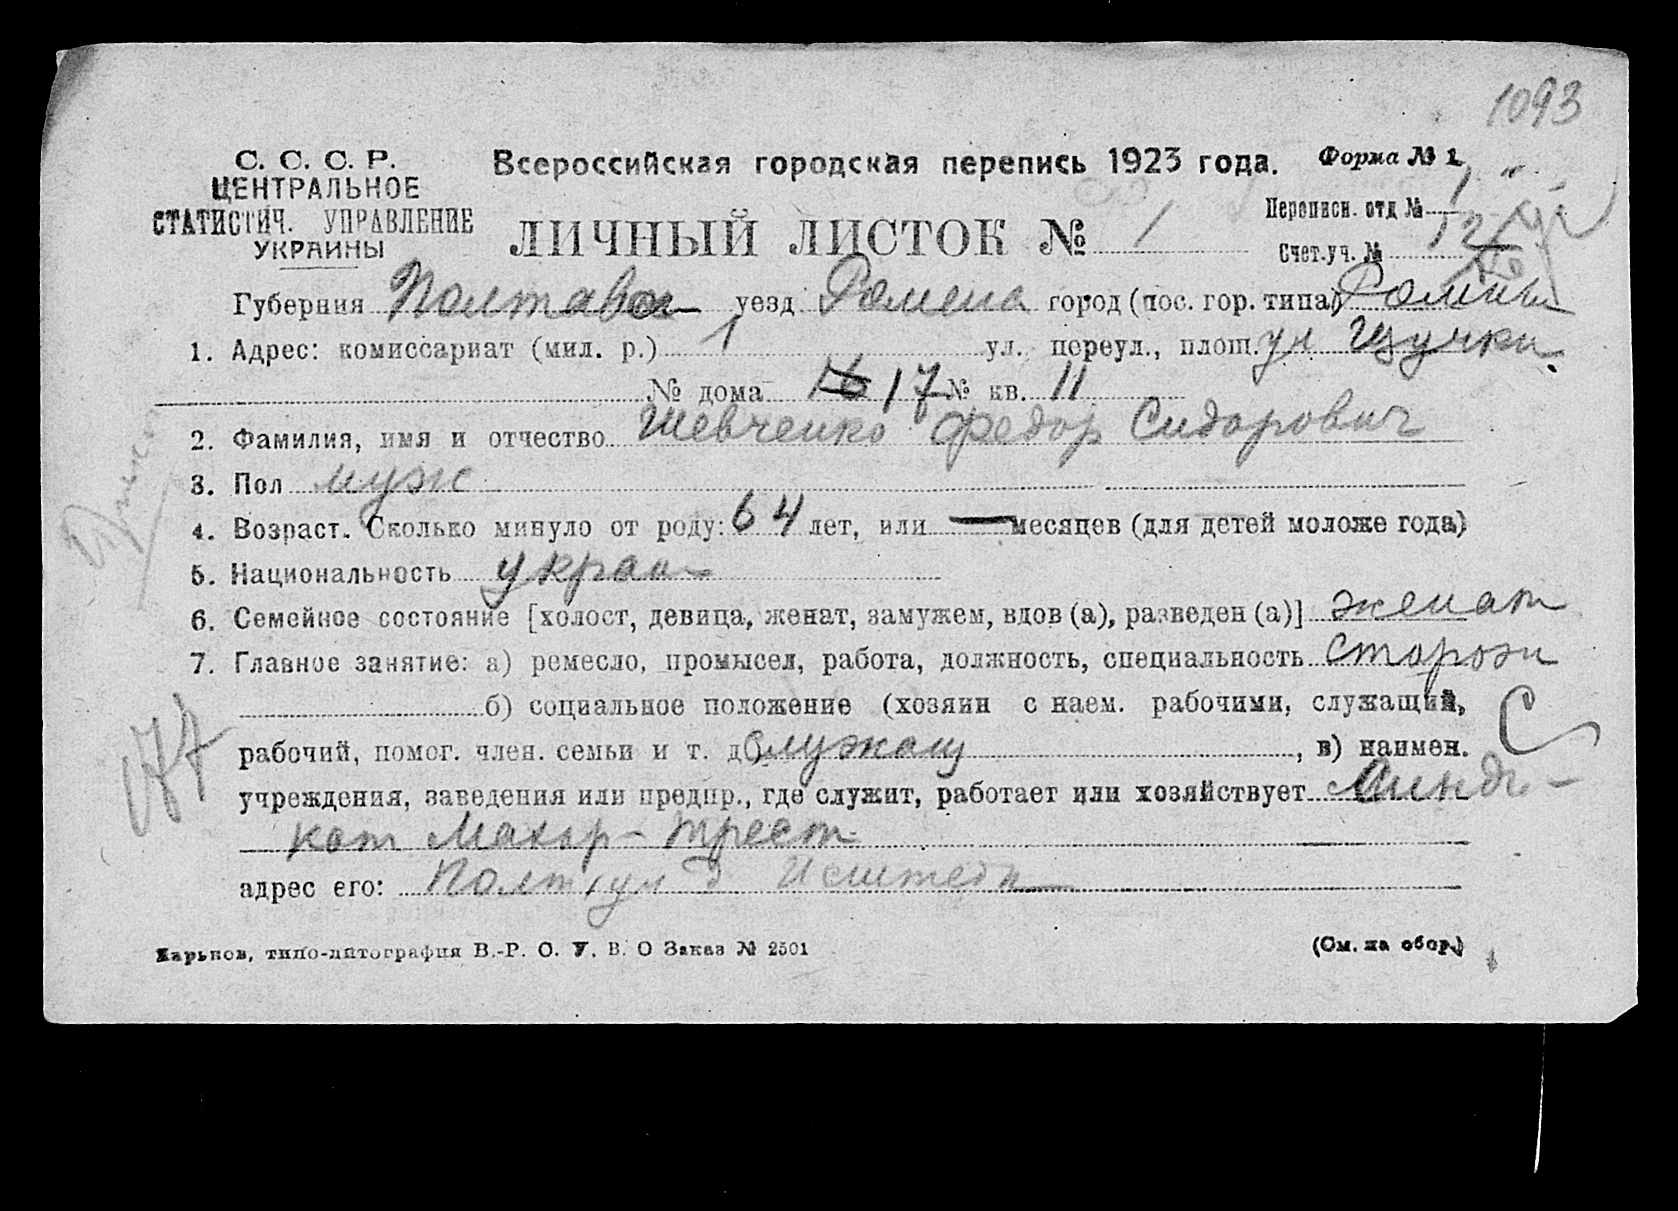 1093
С. С. С. Р. Всероссийская городская перепись 1923 года. Форма № 1
ЦЕНТРАЛЬНОЕ
СТАТИСТИЧ. УПРАВЛЕНИЕ Переписн. отд № 1
УКРАИНЫ ЛИЧНЫЙ ЛИСТОК № 1 Счет. уч. № 12
Губерния Полтавск уезд Ромена город (пос. гор. типа) Ромны
1. Адрес: комиссариат (мил. р.) 1 ул. переул., площ. ул Щучки
№ дома 16 17 № кв. 11
2. Фамилия, имя и отчество Шевченко Федор Сидорович
3. Пол муж
4. Возраст. Сколько минуло от роду: 64 лет, или — месяцев (для детей моложе года)
5. Национальность украин
6. Семейное состояние [холост, девица, женат, замужем, вдов (а), разведен (а)] женат
7. Главное занятие: а) ремесло, промысел, работа, должность, специальность сторож
б) социальное положение (хозяин с наем. рабочими, служащий,
рабочий, помог. член. семьи и т. д. служащ, в) наимен. С
учреждения, заведения или предпр., где служит, работает или хозяйствует Синди-
кат Махор-трест
адрес его: Полт. ул д
Харьков, типо-литография В.-Р. О. У. В. О Заказ № 2501 (См. на обор.)
177